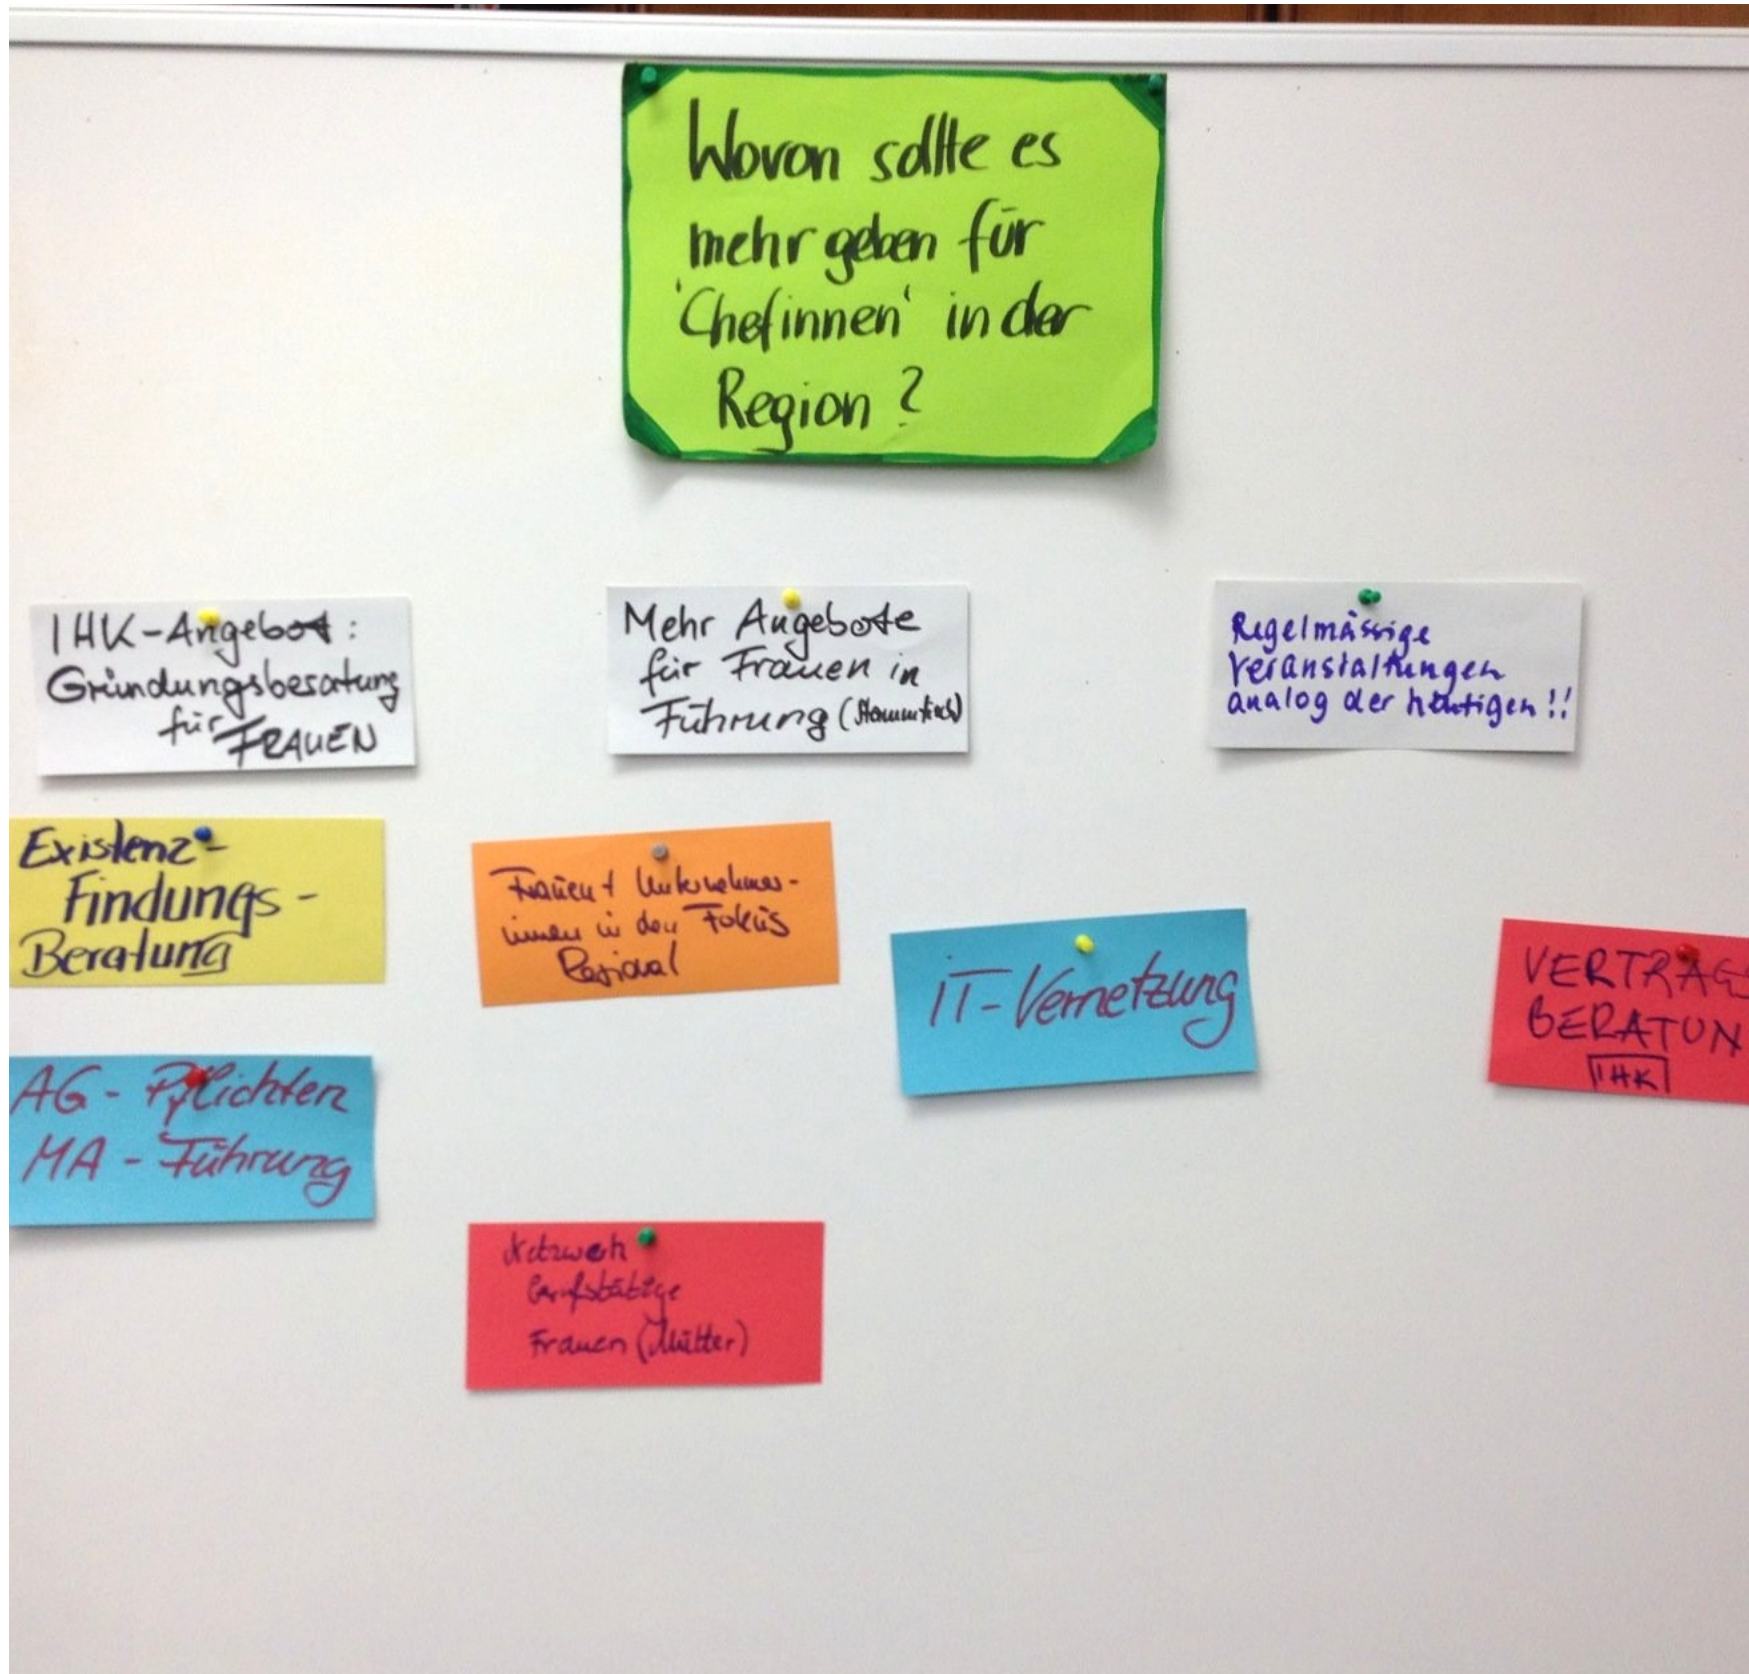 Wovon sollte es
mehr geben für
'Chefinnen' in der
Region?
IHK-Angebot:
Gründungsberatung
für FRAUEN
Mehr Angebote
für Frauen in
Führung (Stammtisch)
Regelmässige
Veranstaltungen
analog der heutigen!!
Existenz-
Findungs-
Beratung
Frauen + Unternehmer-
innen in den Fokus
Regional
IT-Vernetzung
VERTRAGS
BERATUN
IHK
AG - Pflichten
MA - Führung
Netzwerk
berufstätige
Frauen (Mütter)